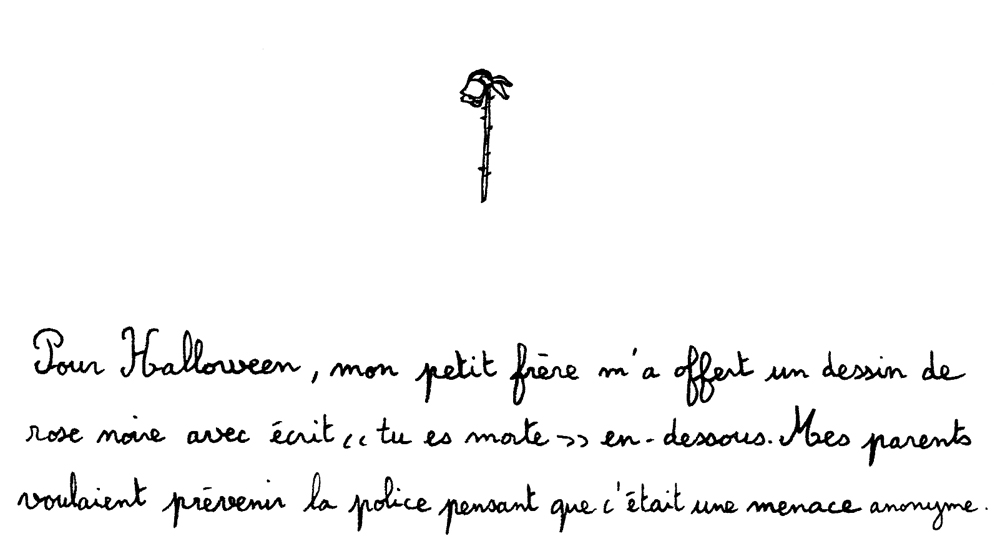 Pour Halloween, mon petit frère m'a offert un dessin de
rose noire avec écrit << tu es morte >> en-dessous. Mes parents
voulaient prévenir la police pensant que c'était une menace anonyme.